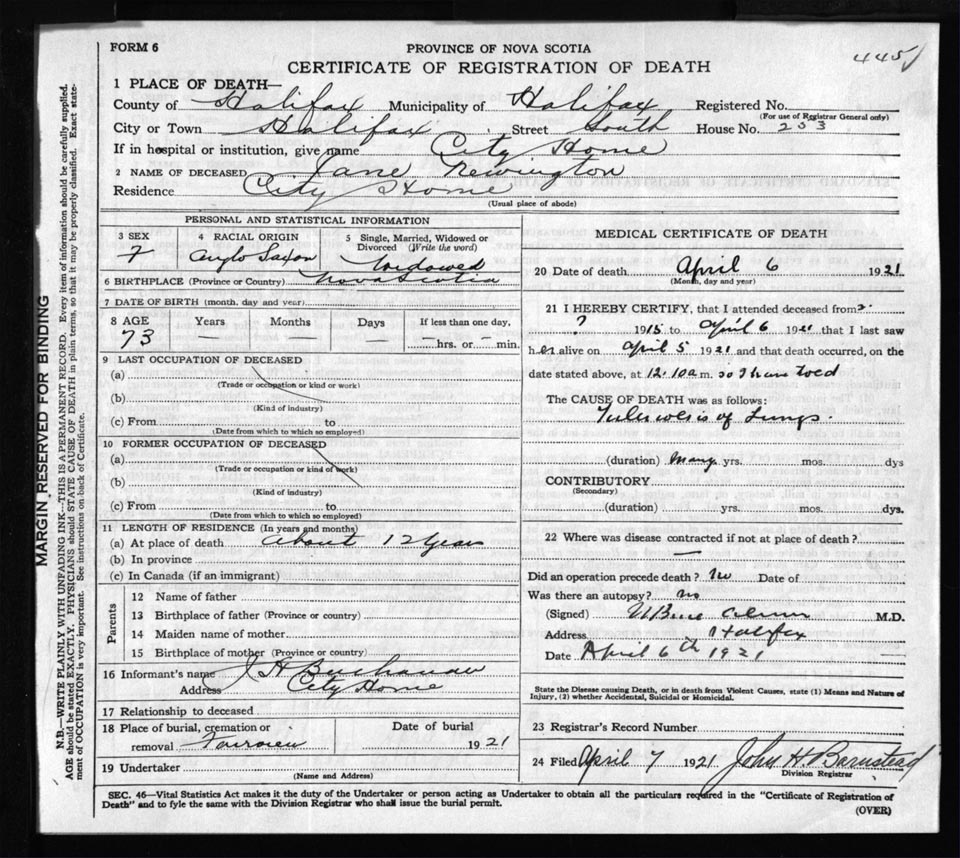 FORM 6
PROVINCE OF NOVA SCOTIA
4451
CERTIFICATE OF REGISTRATION OF DEATH
1 PLACE OF DEATH—
County of Halifax Municipality of Halifax Registered No.
(For use of Registrar General only)
City or Town Halifax Street South House No. 253
If in hospital or institution, give name City Home
2 NAME OF DECEASED Jane Newington
Residence City Home
(Usual place of abode)
PERSONAL AND STATISTICAL INFORMATION
3 SEX 4 RACIAL ORIGIN 5 Single, Married, Widowed or Divorced (Write the word)
F Anglo Saxon Widowed
6 BIRTHPLACE (Province or Country) Nova Scotia
7 DATE OF BIRTH (month, day and year)
8 AGE Years Months Days If less than one day,
73 — — — — hrs. or — min.
9 LAST OCCUPATION OF DECEASED
(a)
(Trade or occupation or kind or work)
(b)
(Kind of industry)
(c) From to
(Date from which to which so employed)
10 FORMER OCCUPATION OF DECEASED
(a)
(Trade or occupation or kind of work)
(b)
(Kind of industry)
(c) From to
(Date from which to which so employed)
11 LENGTH OF RESIDENCE (In years and months)
(a) At place of death about 12 years
(b) In province
(c) In Canada (if an immigrant)
Parents
12 Name of father
13 Birthplace of father (Province or country)
14 Maiden name of mother
15 Birthplace of mother (Province or country)
16 Informant's name J H Buchanan
Address City Home
17 Relationship to deceased
18 Place of burial, cremation or Date of burial
removal Fairview 1921
19 Undertaker
(Name and Address)
MEDICAL CERTIFICATE OF DEATH
20 Date of death April 6 1921
(Month, day and year)
21 I HEREBY CERTIFY, that I attended deceased from
? 1915 to April 6 1921 that I last saw
her alive on April 5 1921 and that death occurred, on the
date stated above, at 12.10 a m. so I have told
The CAUSE OF DEATH was as follows:
Tuberculosis of Lungs.
(duration) many yrs. mos. dys
CONTRIBUTORY
(Secondary)
(duration) yrs. mos. dys.
22 Where was disease contracted if not at place of death?
—
Did an operation precede death? No Date of
Was there an autopsy? no
(Signed) M.D.
Address Halifax
Date April 6th 1921
State the Disease causing Death, or in death from Violent Causes, state (1) Means and Nature of
Injury, (2) whether Accidental, Suicidal or Homicidal.
23 Registrar's Record Number
24 Filed April 7 1921 John H Barnstead
Division Registrar
SEC. 46—Vital Statistics Act makes it the duty of the Undertaker or person acting as Undertaker to obtain all the particulars required in the "Certificate of Registration of
Death" and to fyle the same with the Division Registrar who shall issue the burial permit.
(OVER)
MARGIN RESERVED FOR BINDING
N.B.—WRITE PLAINLY WITH UNFADING INK—THIS IS A PERMANENT RECORD. Every item of information should be carefully supplied.
AGE should be stated EXACTLY. PHYSICIANS should STATE CAUSE OF DEATH in plain terms, so that it may be properly classified. Exact state-
ment of OCCUPATION is very important. See instructions on back of Certificate.